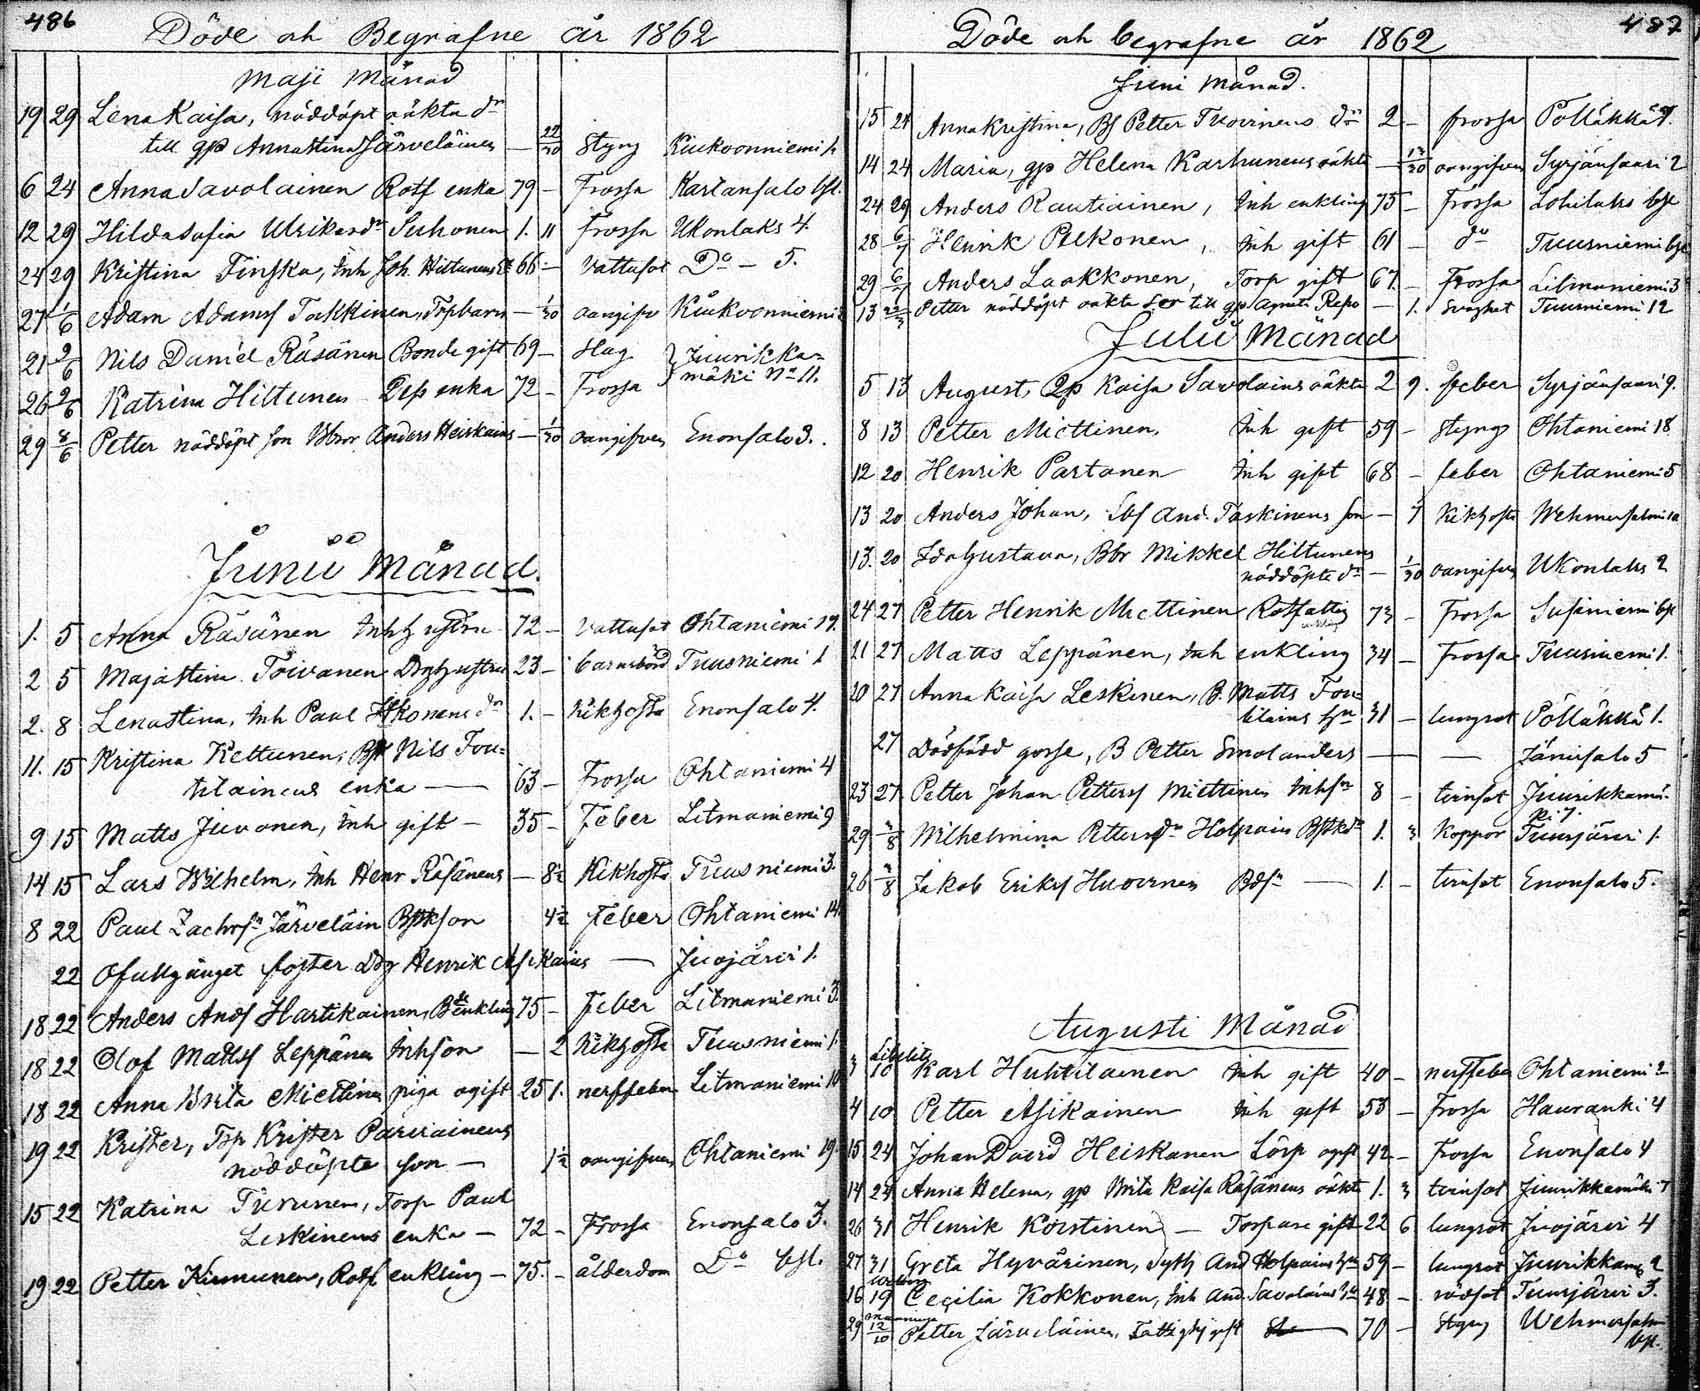 486
Döde och Begrafne år 1862
Maji Månad
19 29 Lena Kaisa, nöddöpt oäkta dr
till gp Annastina Järveläinen — 22/30 Styng Kiukoonniemi 1.
6 24 Anna Savolainen Rotf enka 79 – Frossa Kartansalo bst.
12 29 Hilda Sofia Ulrikasdr Suhonen 1. 11 Frossa Ukonlaks 4.
24 29 Kristina Finska, Inh Joh. Hiltunens E. 66 – Vattusot Do – 5.
27 1/6 Adam Adamsf Takkinen, Torpbarn – 1/30 oangifv Kiukoonniemi
21 9/6 Nils Daniel Räsänen Bonde gift 69 – Hag } Juurikka-
26 9/6 Katrina Hiltunen Dess enka 72 – Frossa } mäki No 11.
29 8/6 Petter nöddöpt son Anders Heiskains – 1/30 oangifven Enonsalo 3.
Junii Månad.
1. 5 Anna Räsänen Inh hustru 72 – Vattusot Ohtaniemi 19.
2 5 Majastina Toivanen hustru 23 – barnsbörd Tuusniemi 1
2. 8 Lenastina, Inh Paul Itkonens dr 1. – Kikhosta Enonsalo 4.
11. 15 Kristina Kettunen, Nils Tou=
tilainens enka — 63 – Frossa Ohtaniemi 4
9 15 Matts Juvonen, Inh gift – 35 – Feber Litmaniemi 9
14 15 Lars Wilhelm, Inh Henr Räsänens – 8½ Kikhosta Tuusniemi 3.
8 22 Paul Zachrsn Järveläin Bstkson 4½ Feber Ohtaniemi 14
22 Ofullgånget foster Drg Henrik Asikains — Juojärvi 1.
18 22 Anders Andf Hartikainen, Bde enkling 75 – Feber Litmaniemi 3.
18 22 Olof Mattsf Leppänen Inhson – 2 Kikhosta Tuusniemi 1.
18 22 Anna Brita Miettinen piga ogift 25 1. nerffeber Litmaniemi 10
19 22 Krister, Torp Krister Parviainens
nöddöpte son — 1½ oangifven Ohtaniemi 19.
15 22 Katrina Turunen, Torp Paul
Leskinens enka – 72 – Frossa Enonsalo 3.
19 22 Petter Kinnunen, Rotf enkling – 75. – ålderdom Do bst.
487
Döde och begrafne år 1862
Juni Månad.
15 24 Anna Kristina, Bs Petter Tuovinens dr 2 – frossa Pölläkkä 9.
14 24 Maria, gp Helena Karhunens oäkta – 12/30 oangifven Syrjänsaari 2
24 29 Anders Rautiainen, Inh enkling 75 – Frossa Lohilaks bst
28 6/7 Henrik Pelkonen, Inh gift 61 – do Tuusniemi bst
29 6/7 Anders Laakkonen, Torp gift 67. – Frossa Litmaniemi 3
13 Petter nöddöpt oäkta son till gp Agneta Repo – 1. Svaghet Tuusniemi 12
Julii Månad
5 13 August, Qp Kaisa Savolains oäkta 2 9. feber Syrjänsaari 9.
8 13 Petter Miettinen, Inh gift 59 – Styng Ohtaniemi 18
12 20 Henrik Partanen Inh gift 68 – feber Ohtaniemi 5
13 20 Anders Johan, And. Taskinens son – 7 Kikhosta Wehmersalmi 10
13. 20 Ida Gustava, Bbr Mikkel Hiltunens
nöddöpte dr – 1/30 oangifven Ukonlaks 2
24 27 Petter Henrik Miettinen Rotfattig 73 – Frossa Susiniemi bst
21 27 Matts Leppänen, Inh enkling 34 – Frossa Tuusniemi 1.
20 27 Anna Kaisa Leskinen, B. Matts Tou=
tilains hu 31 – lungsot Pölläkkä 1.
27 Dödfödd gosse, B Petter Smolanders — — Jänissalo 5
23 27 Petter Johan Pettersf Miettinen Inhsn 8 – tvinsot Juurikkamä-
ki 7.
29 3/8 Wilhelmina Pettersdr Holpain Bstkdr 1. 3 Koppor Tuusjärvi 1.
26 3/8 Jakob Eriksf Huovinen Bdsn — 1. – tvinsot Enonsalo 5.
Augusti Månad
Libelits
3 10 Karl Huhtilainen Inh gift 40 – nerffeber Ohtaniemi 2
4 10 Petter Asikainen Inh gift 53 – Frossa Hauranki 4
15 24 Johan David Heiskanen Lösp ogift 42 – Frossa Enonsalo 4
14 24 Anna Helena, gp Brita Kaisa Räsänens oäkta 1. 3 tvinsot Juurikkamäki 7
26 31 Henrik Korstinen – Torpare gift 22 6 lungsot Juojärvi 4
27 31 Greta Hyvärinen, Sytn And Holpains hu 59 – lungsot Juurikkamä 2
16 19 Cecilia Kokkonen, Inh And. Savolains hu 48 – rödsot Tuusjärvi 3.
29 12/10 Petter Järveläinen, Fattighj gift — 70 – Styng Wehmersalmi
bst.